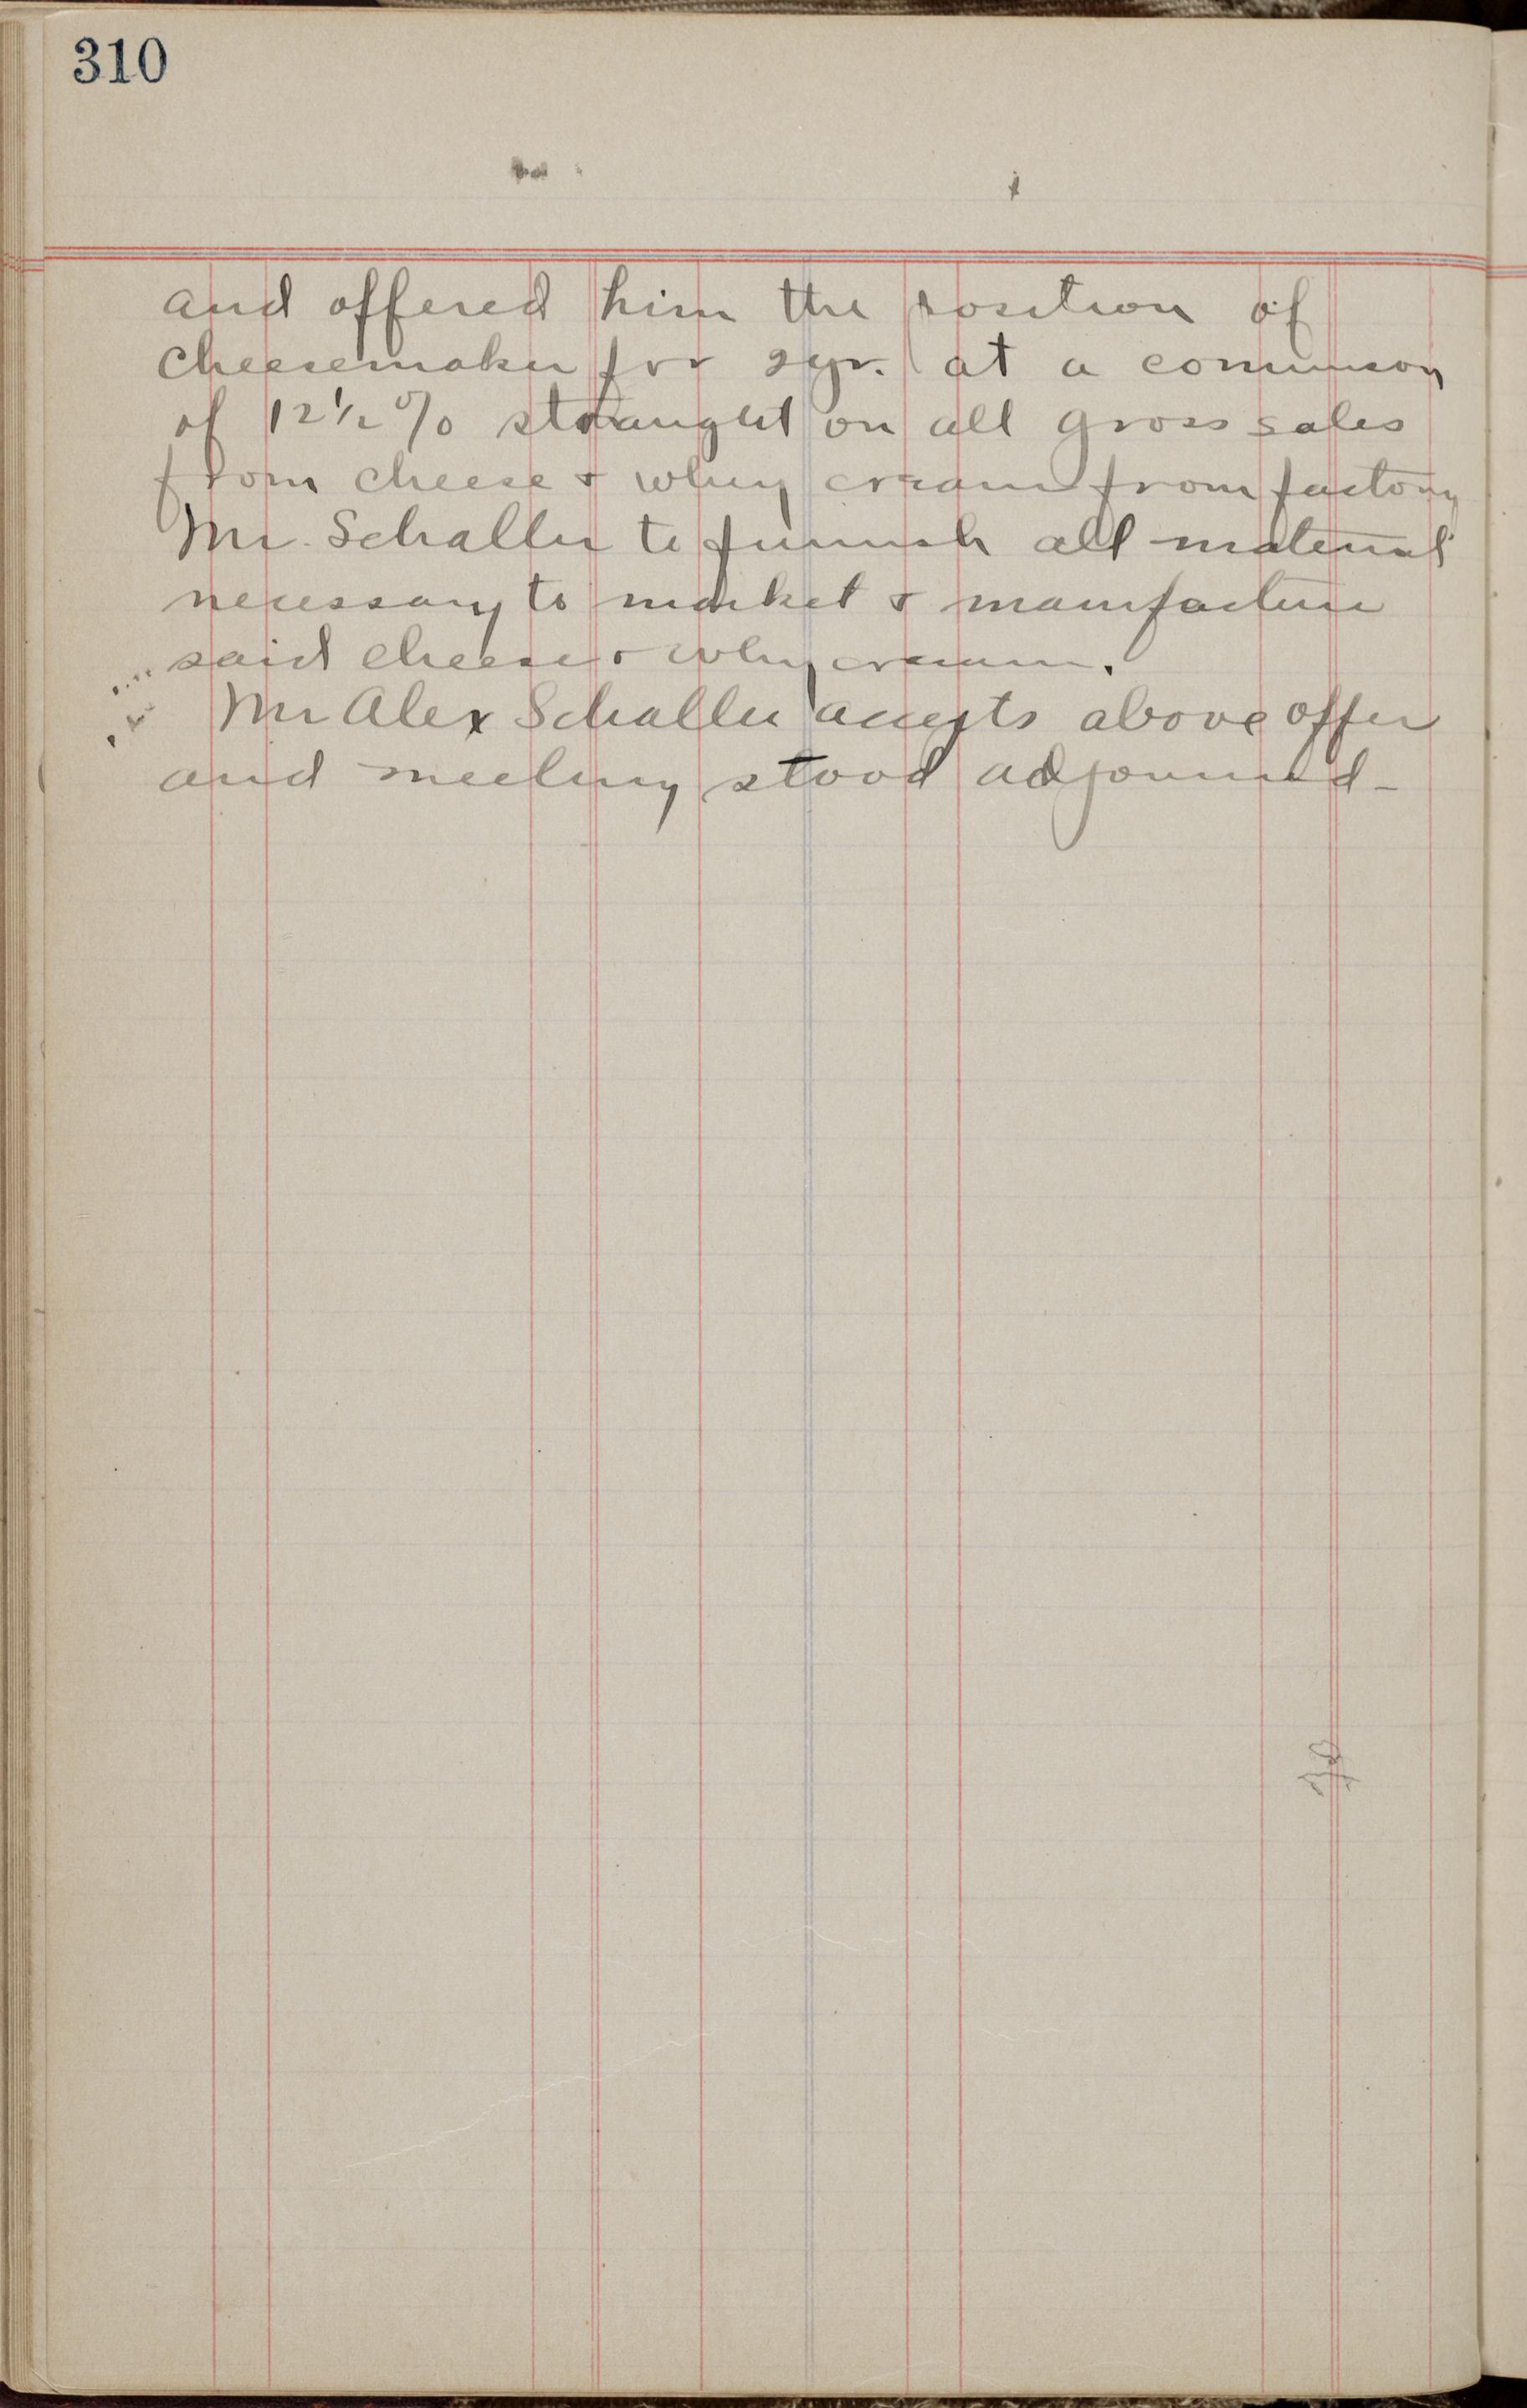 310
and offered him the position of
cheesemaker for 2yr. at a commission
of 12½% straught on all gross sales
from cheese & whey cream from factory
Mr. Schaller to furnish all material
necessary to market & manufacture
said cheese & whey cream.
Mr Alex Schaller accepts above offer
and meeting stood adjourned -